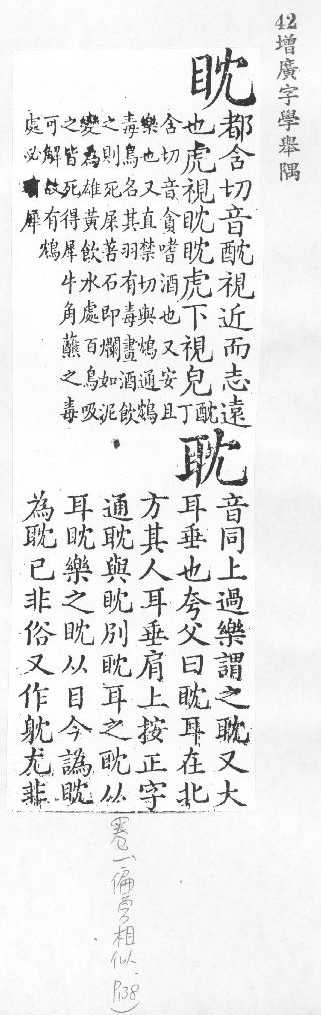 42增廣字學舉隅
眈
都含切音酖視近而志遠
也虎視眈眈虎下視皃酖丁
含切音貪嗜酒也又安且
樂也又直禁切與鴆通鴆
毒鳥名其羽有毒畫酒飲
之則死屎著石即爛如泥
變為雄黃飲水處百鳥吸
之皆死得犀牛角蘸之毒
可解故有鴆
處必犀
耽
音同上過樂謂之耽又大
耳垂也夸父曰耽耳在北
方其人耳垂肩上按正字
通耽與眈別耽耳之耽从
耳眈樂之眈从目今譌眈
為耽已非俗又作躭尤非
卷一、偏旁相似. P.138)